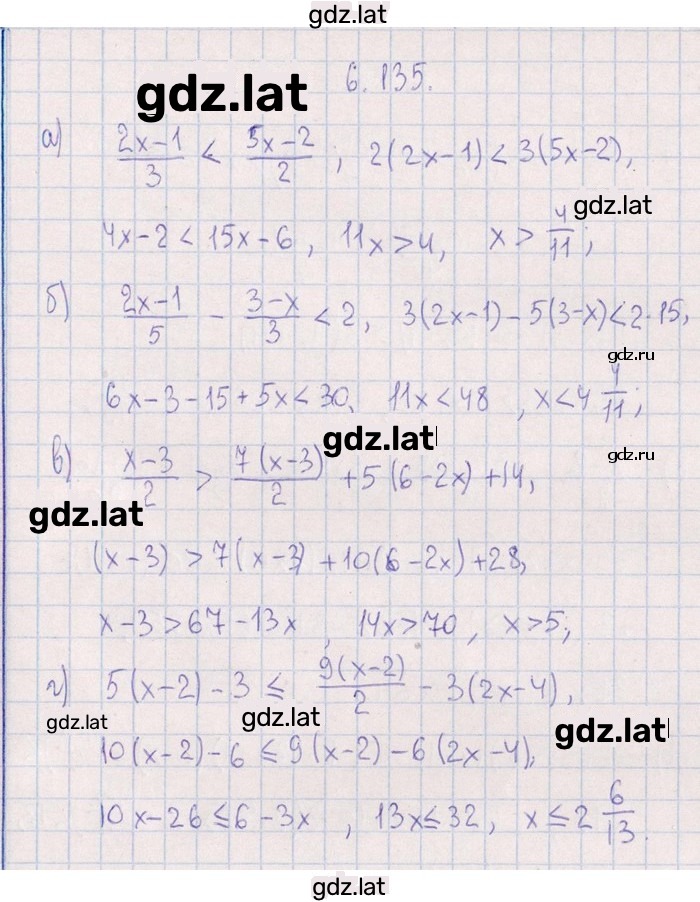 gdz.lat
6.135.
gdz.lat
а) (2x-1)/3 < (5x-2)/2 ; 2(2x-1) < 3(5x-2),
gdz.lat
4x-2 < 15x-6, 11x > 4, x > 4/11;
б) (2x-1)/5 - (3-x)/3 < 2, 3(2x-1) - 5(3-x) < 2·15,
gdz.ru
6x-3-15+5x < 30, 11x < 48, x < 4 4/11;
gdz.lat
gdz.ru
в) (x-3)/2 > 7(x-3)/2 + 5(6-2x) + 14,
gdz.lat
(x-3) > 7(x-3) + 10(6-2x) + 28,
x-3 > 67-13x, 14x > 70, x > 5;
г) 5(x-2) - 3 ≤ 9(x-2)/2 - 3(2x-4),
gdz.lat
gdz.lat
gdz.lat
10(x-2) - 6 ≤ 9(x-2) - 6(2x-4),
10x-26 ≤ 6-3x, 13x ≤ 32, x ≤ 2 6/13.
gdz.lat